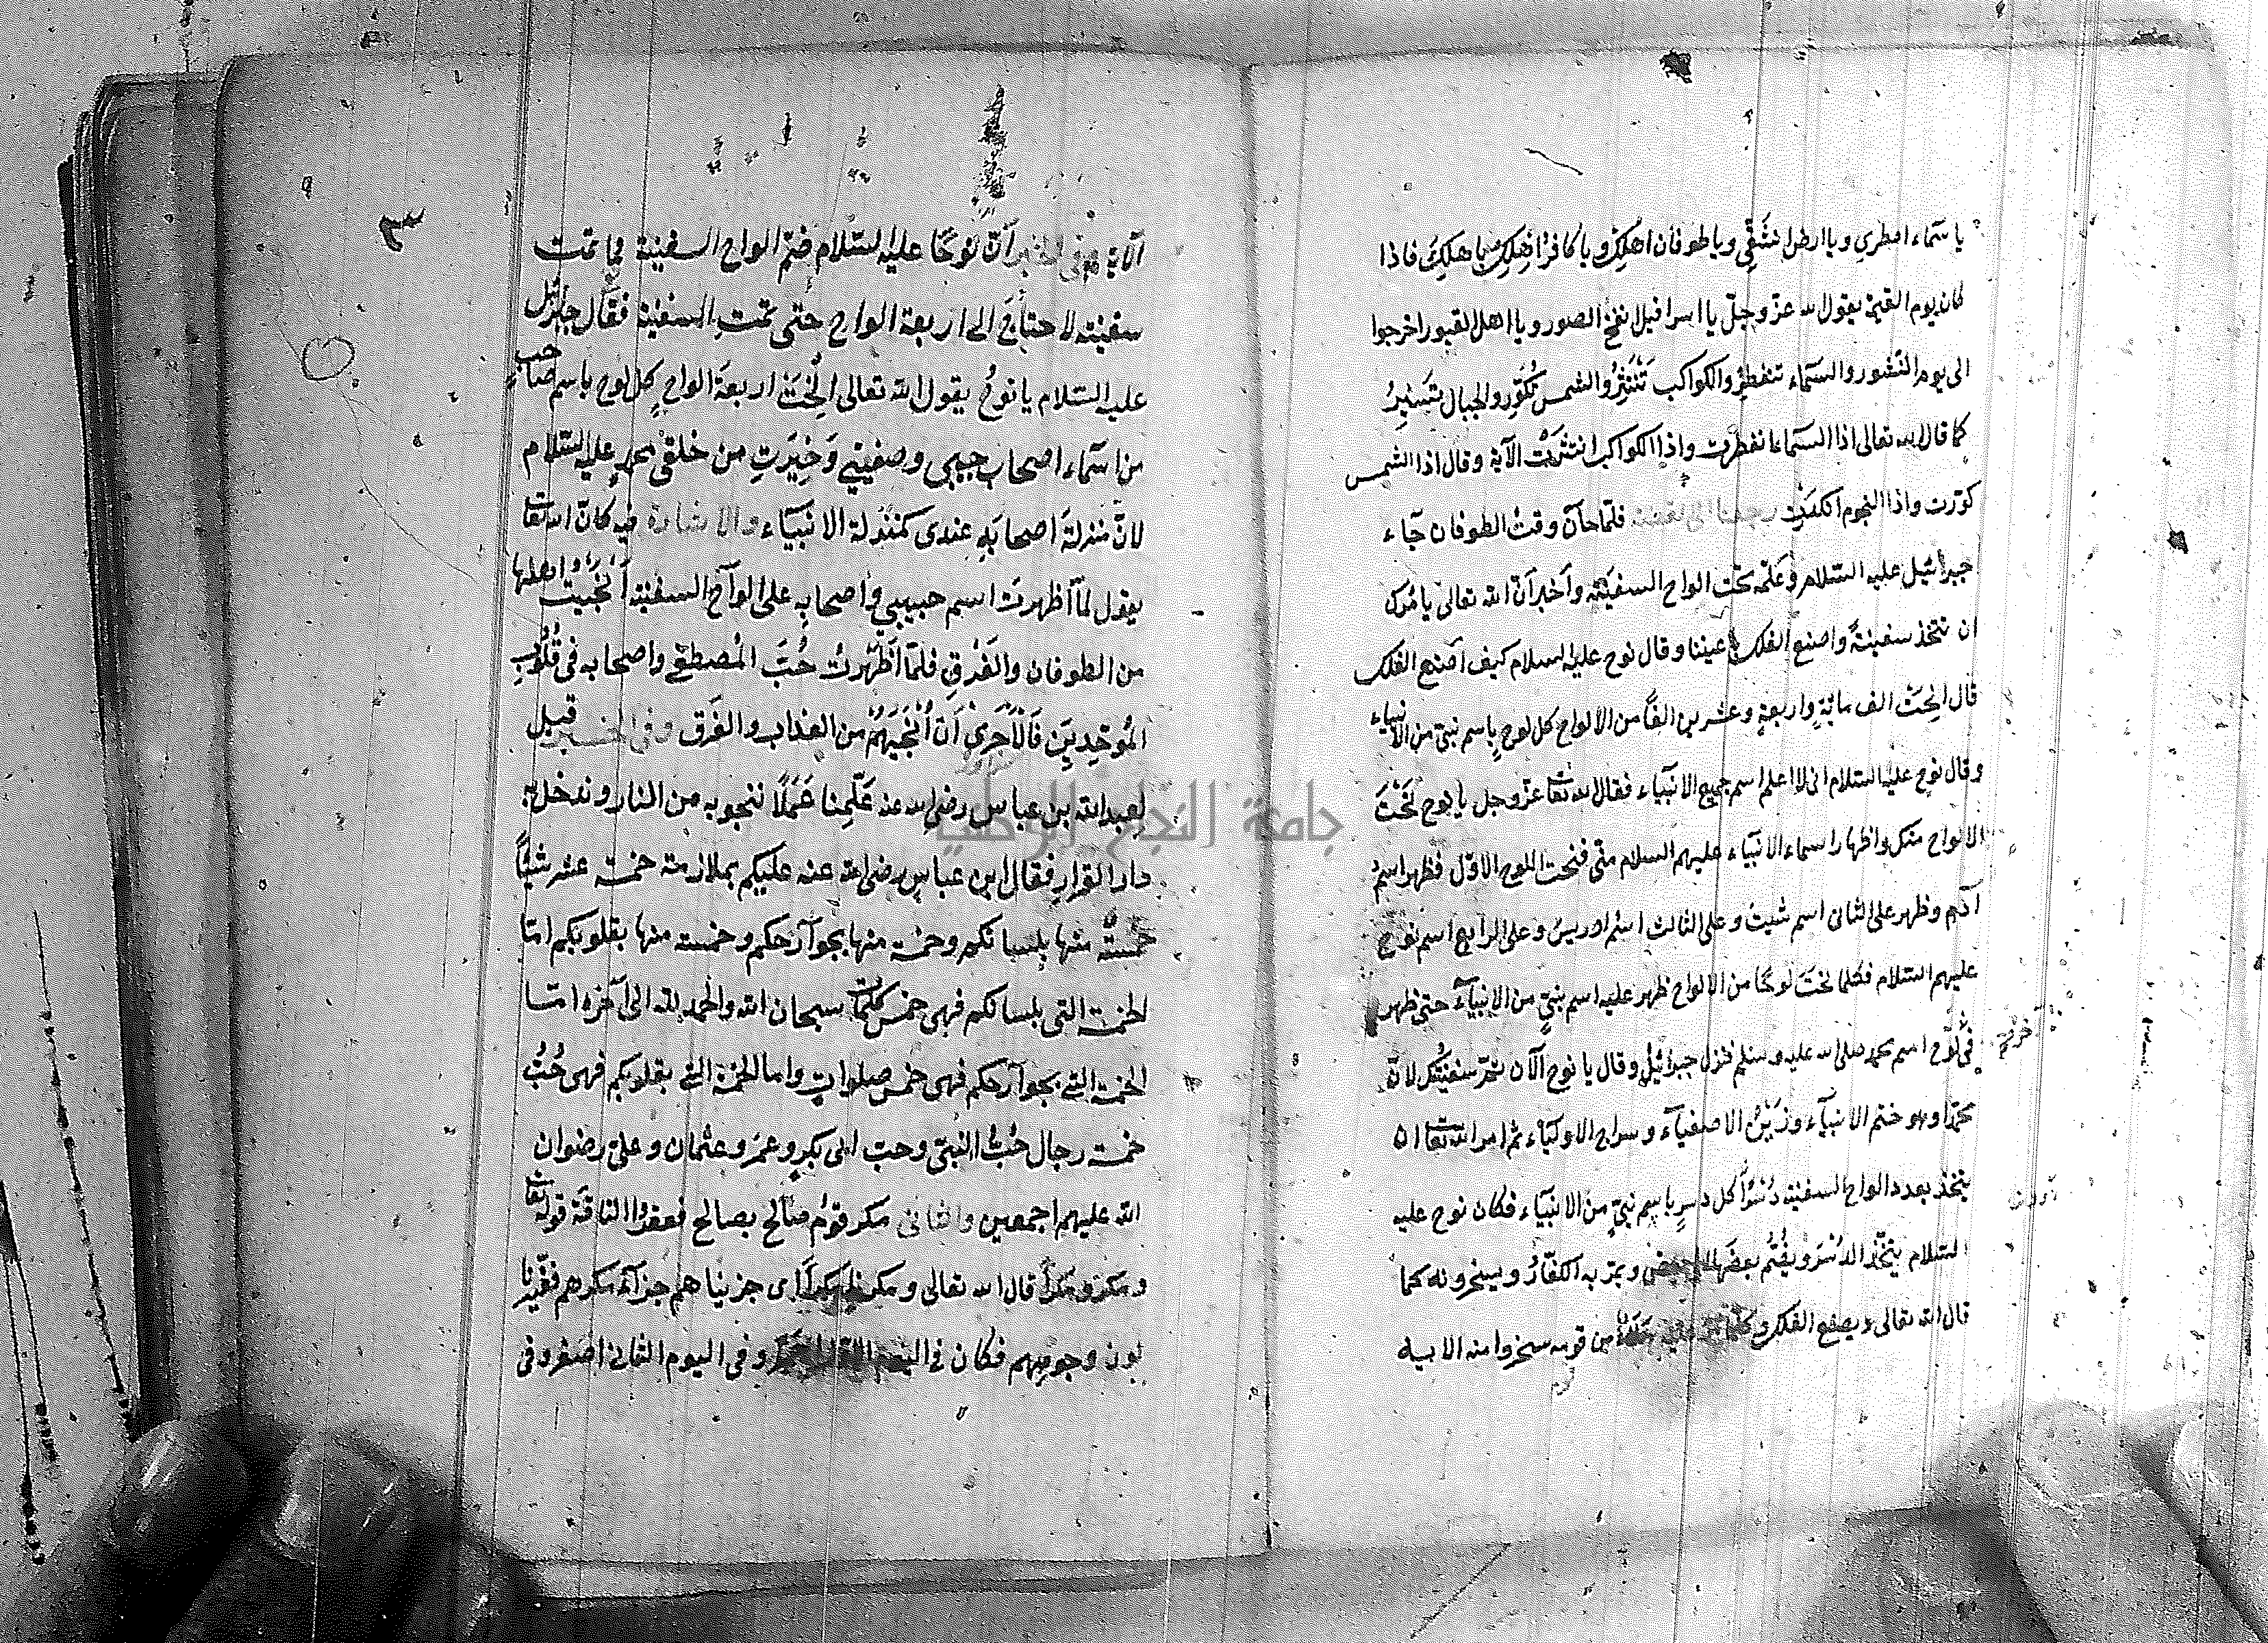 يا سماء امطري ويا ارض انشقي ويا طوفان اهلك ويا كافر اهلك فاذا
كان يوم القيمة يقول الله عز وجل يا اسرافيل انفخ الصور ويا اهل القبور اخرجوا
الى يوم النشور والسماء تنفطر والكواكب تنتثر والشمس تكور والجبال تسير
كما قال الله تعالى اذا السماء انفطرت واذا الكواكب انتثرت الآية وقال اذا الشمس
كورت واذا النجوم انكدرت رجعنا الى القصة فلما حان وقت الطوفان جاء
جبرائيل عليه السلام وعلمه نحت الواح السفينة وأخبر أن الله تعالى يأمرك
ان تتخذ سفينة واصنع الفلك باعيننا وقال نوح عليه السلام كيف أصنع الفلك
قال انحت الف مائة واربعة وعشرين الفا من الألواح كل لوح باسم نبي من الانبياء
وقال نوح عليه السلام اني لا اعلم اسم جميع الانبياء فقال الله تعا عز وجل يا نوح نحت
الالواح منك واظهار اسماء الانبياء عليهم السلام مني فنحت اللوح الاول فظهر اسم
آدم وظهر على الثاني اسم شيث وعلى الثالث اسم ادريس وعلى الرابع اسم نوح
عليهم السلام فكلما نحت لوحا من الالواح ظهر عليه اسم نبي من الانبياء حتى ظهر
في لوح اسم محمد صلى الله عليه وسلم فنزل جبرائيل وقال يا نوح الآن تم سفينتك لانه
محمدا وهو ختم الانبياء وزين الاصفياء وسراج الاولياء ثم امر الله تعا ان
يتخذ بعدد الواح السفينة دسرا كل دسر باسم نبي من الانبياء فكان نوح عليه
السلام يتخذ الدسر ويضم بعضها ببعض ويمر به الكفار ويسخرونه كما
قال الله تعالى ويصنع الفلك وكلما مر عليه ملأ من قومه سخروا منه الاية
٣
الآية وفي الخبر أن نوحا عليه السلام ضم الواح السفينة فما تمت
سفينته لاحتاج الى اربعة الواح حتى تمت السفينة فقال جبرائيل
عليه السلام يا نوح يقول الله تعالى انحت اربعة الواح كل لوح باسم صاحب
من اسماء اصحاب حبيبي وصفيي وخيرت من خلقي محمد عليه السلام
لان منزلة اصحابه عندي كمنزلة الانبياء والاشارة فيه كان الله تعا
يقول لما أظهرت اسم حبيبي واصحابه على الواح السفينة أنجيت واهلها
من الطوفان والغرق فلما أظهرت حب المصطفى واصحابه في قلوب
الموحدين فالأحرى أن أنجيهم من العذاب والغرق وفي الخبر قيل
لعبد الله بن عباس رضى الله عنه علمنا عملا ننجو به من النار وندخل به
دار القرار فقال ابن عباس رضى الله عنه عليكم بملازمة خمسة عشر شيئا
خمسة منها بلسانكم وخمسة منها بجوارحكم وخمسة منها بقلوبكم اما
الخمسة التي بلسانكم فهي خمس كلمات سبحان الله والحمد لله الى آخره اما
الخمسة التي بجوارحكم فهي خمس صلوات واما الخمسة التي بقلوبكم فهي حب
خمسة رجال حب النبي وحب ابى بكر وعمر وعثمان وعلي رضوان
الله عليهم اجمعين والثاني مكر قوم صالح بصالح فعقروا الناقة قوله تعا
ومكروا مكرا قال الله تعالى ومكرنا مكرا اى جزيناهم جزاء مكرهم فغيرنا
لون وجوههم فكان في اليوم الاول احمر وفي اليوم الثاني اصفر وفي
جامعة النجاح الوطنية